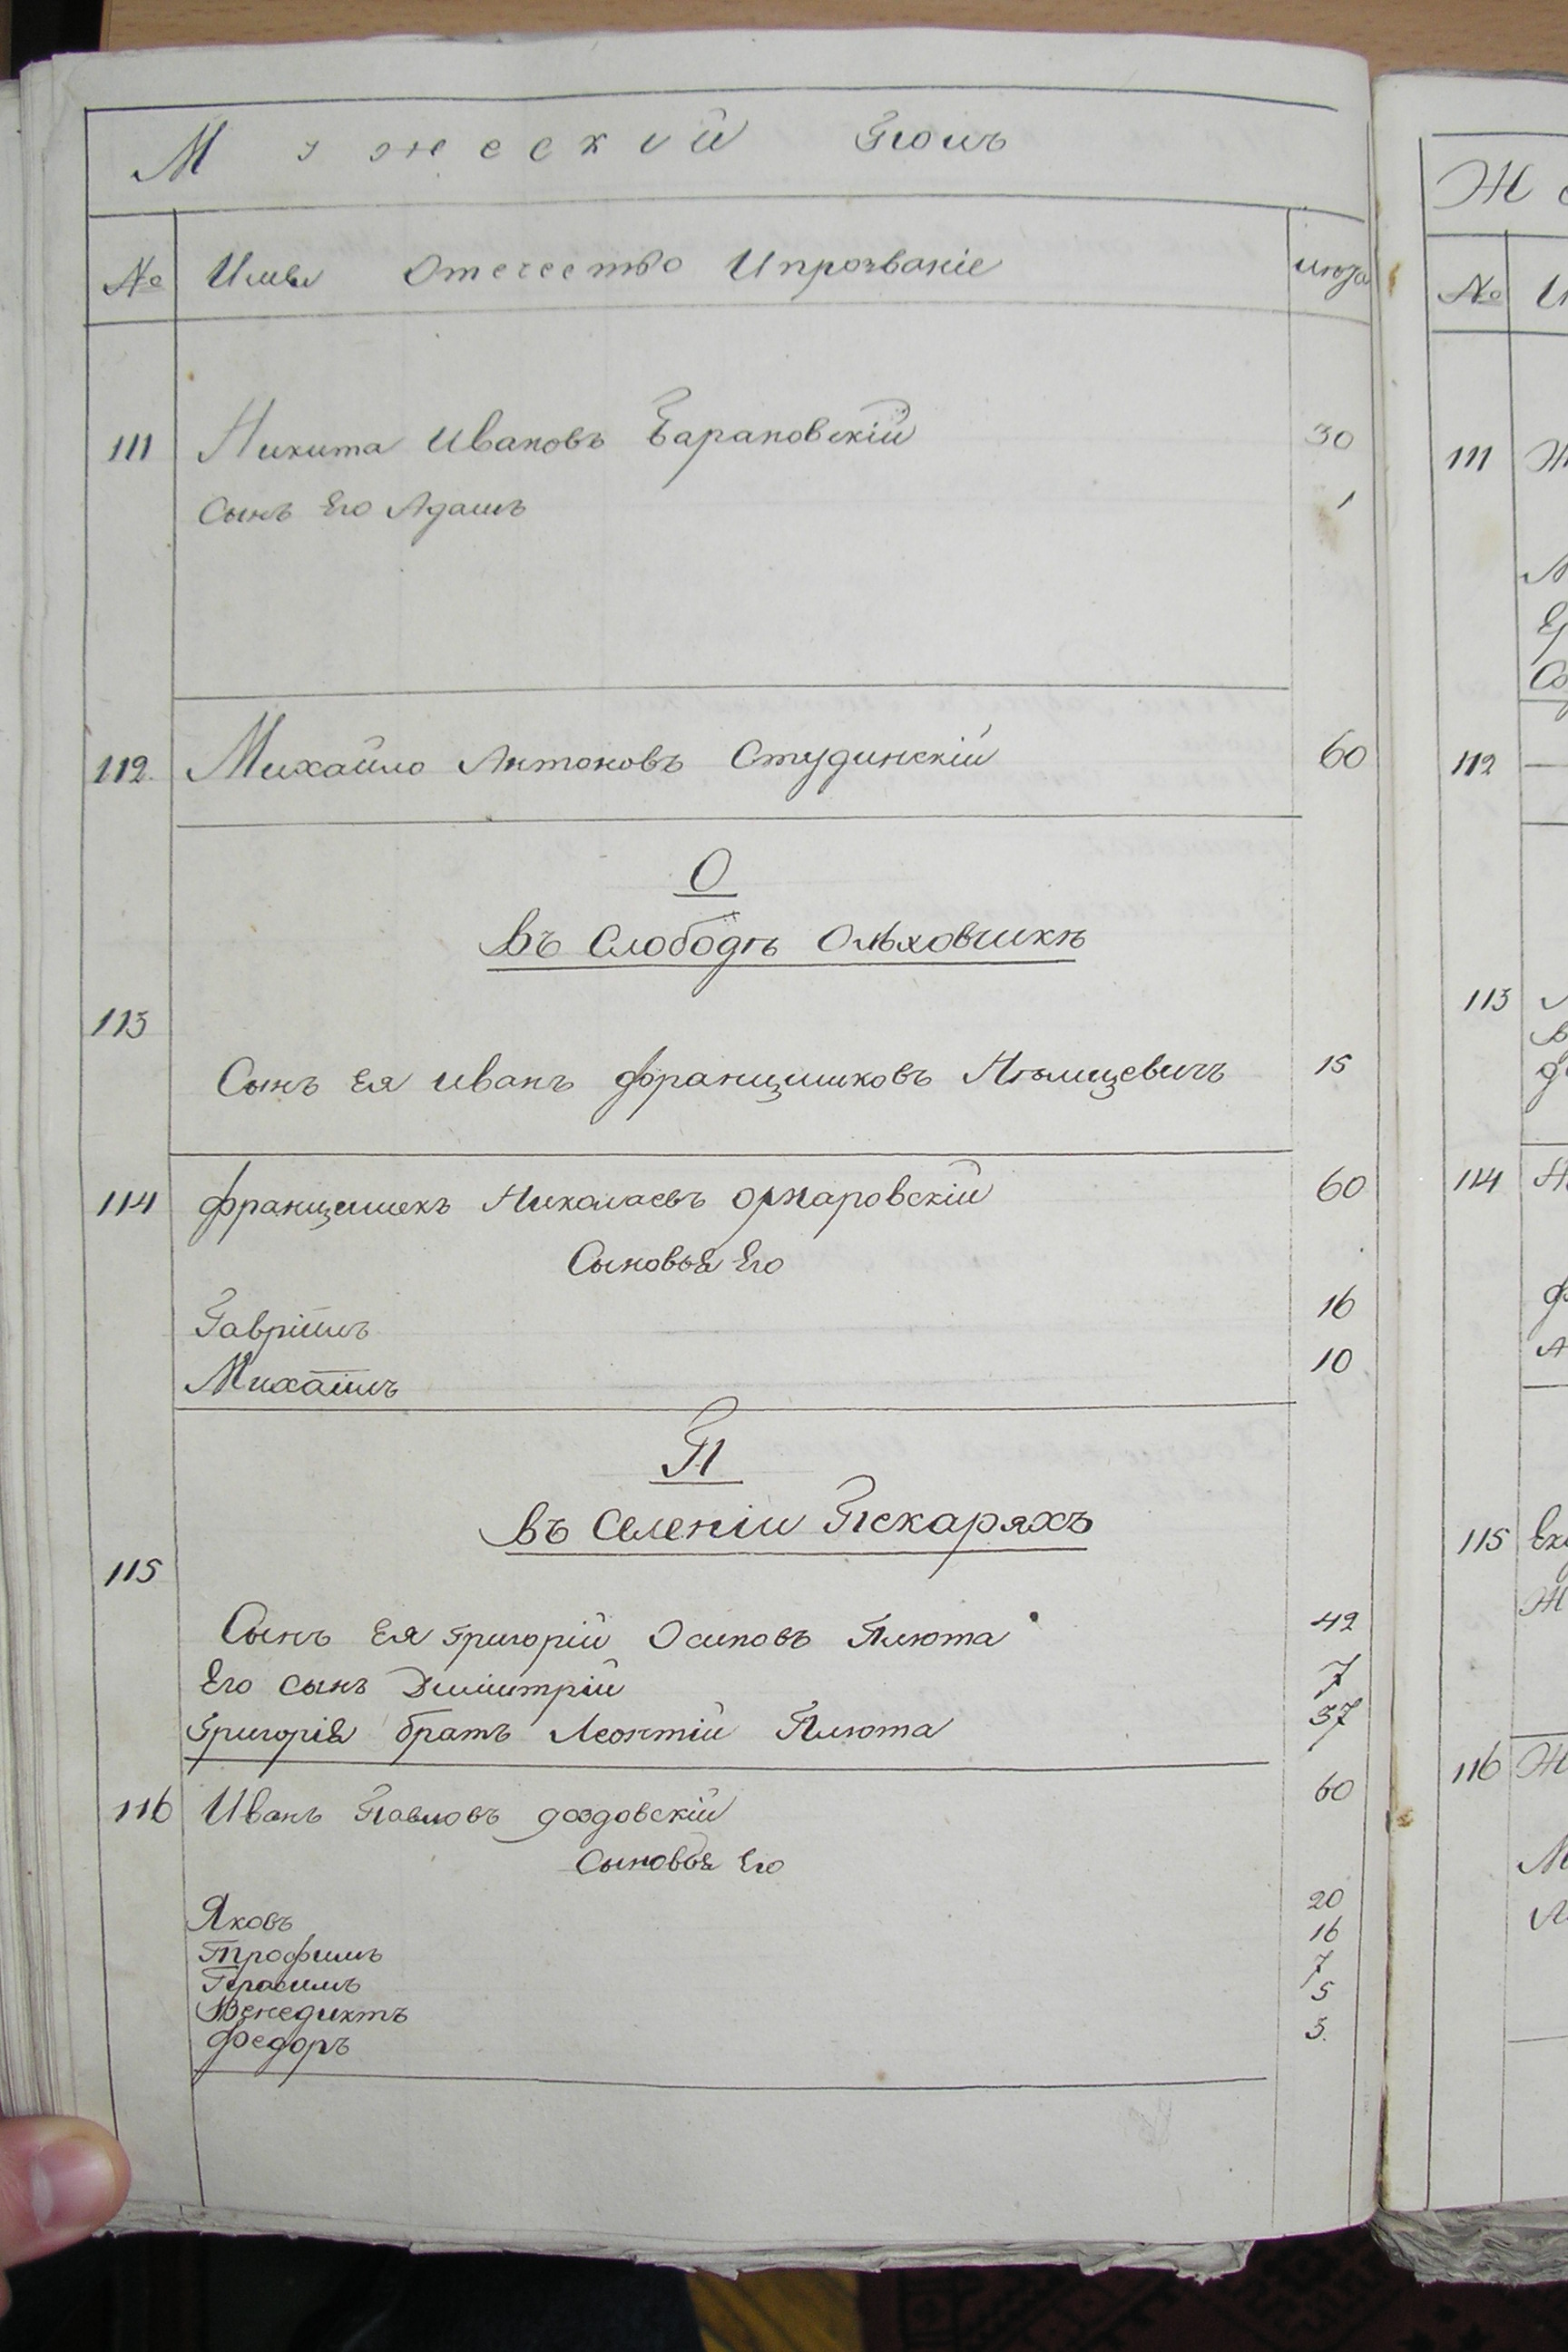 Мужескiй Полъ
№ Имя Отечество И прозванiе лѣта
111 Никита Ивановъ Барановскiй 30
Сынъ Его Адамъ 1
112. Михайло Антоновъ Студинскiй 60
О
Въ Слободѣ Ольховчикѣ
113
Сынъ Ея Иванъ Францишковъ Нѣмцевичъ 15
114 Францишекъ Николаевъ Оржаровскiй 60
Сыновья Его
Гаврiилъ 16
Михаилъ 10
П
Въ Селенiи Пекаряхъ
115
Сынъ Ея Григорiй Осиповъ Плюта 42
Его сынъ Димитрiй 7
Григорiя братъ Леонтiй Плюта 37
116 Иванъ Павловъ 60
Сыновья Его
Яковъ 20
Трофимъ 16
Герасимъ 7
Венедиктъ 5
Федоръ 3.
Ж
№ И
111
112
113
114
115
116